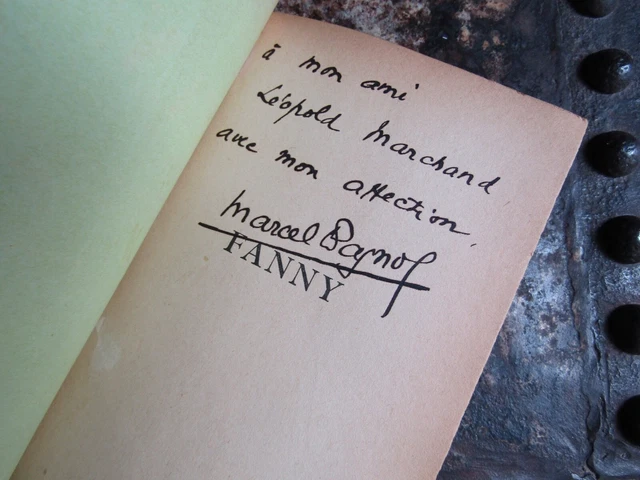 à mon ami
Léopold Marchand
avec mon affection.
Marcel Pagnol
FANNY